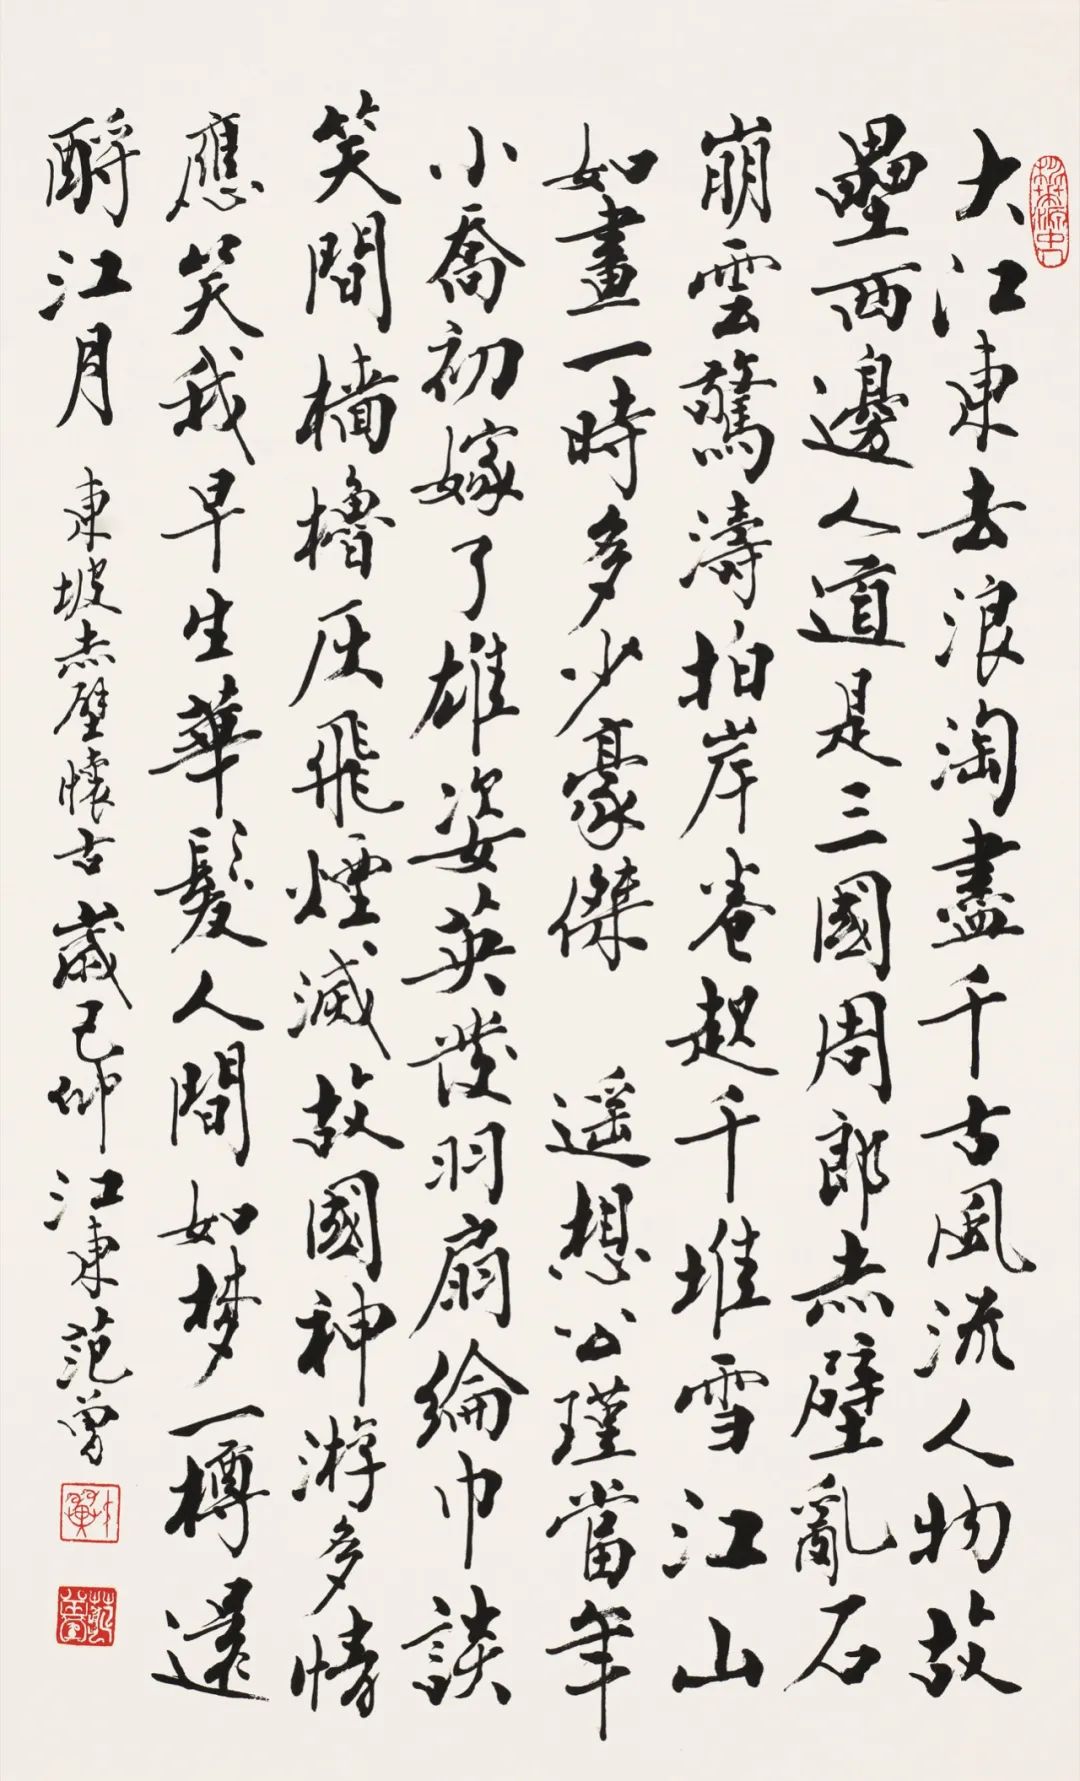 大江東去浪淘盡千古風流人物故
壘西邊人道是三國周郎赤壁亂石
崩雲驚濤拍岸卷起千堆雪江山
如畫一時多少豪傑 遥想公瑾當年
小喬初嫁了雄姿英發羽扇綸巾談
笑間檣櫓灰飛煙滅故國神游多情
應笑我早生華髮人間如梦一樽還
酹江月 東坡赤壁懷古 歲己卯 江東范曾